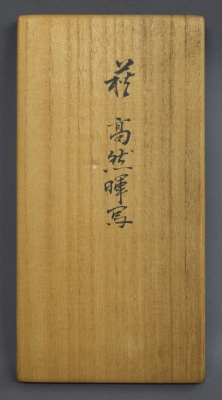 萩 髙然暉写